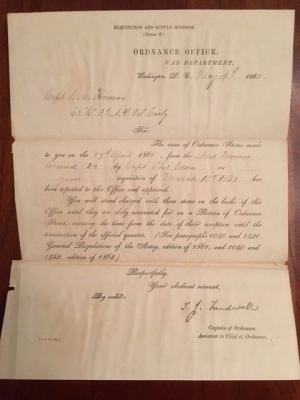 REQUISITION AND SUPPLY DIVISION
ORDNANCE OFFICE,
WAR DEPARTMENT,
Washington, D. C. May 4th, 1865
Capt
Co "C" 3d N.Y. Vol Cavly
Sir:
The issue of Ordnance Stores made
to you on the 27th April 1865, from the Fort Monroe
Arsenal by Capt
requisition of March 1865 has
been reported to this Office and approved.
You will stand charged with these stores on the books of this
Office until they are duly accounted for on a Return of Ordnance
Stores, covering the time from the date of their reception until the
termination of the official quarter. (See paragraphs 1030 and
General Regulations of the Army, edition of 1861, and 1030 and
edition of 1863.)
Respectfully,
Your obedient servant,
By order:
T. J. Treadwell
Captain of Ordnance,
Assistant to Chief of Ordnance.